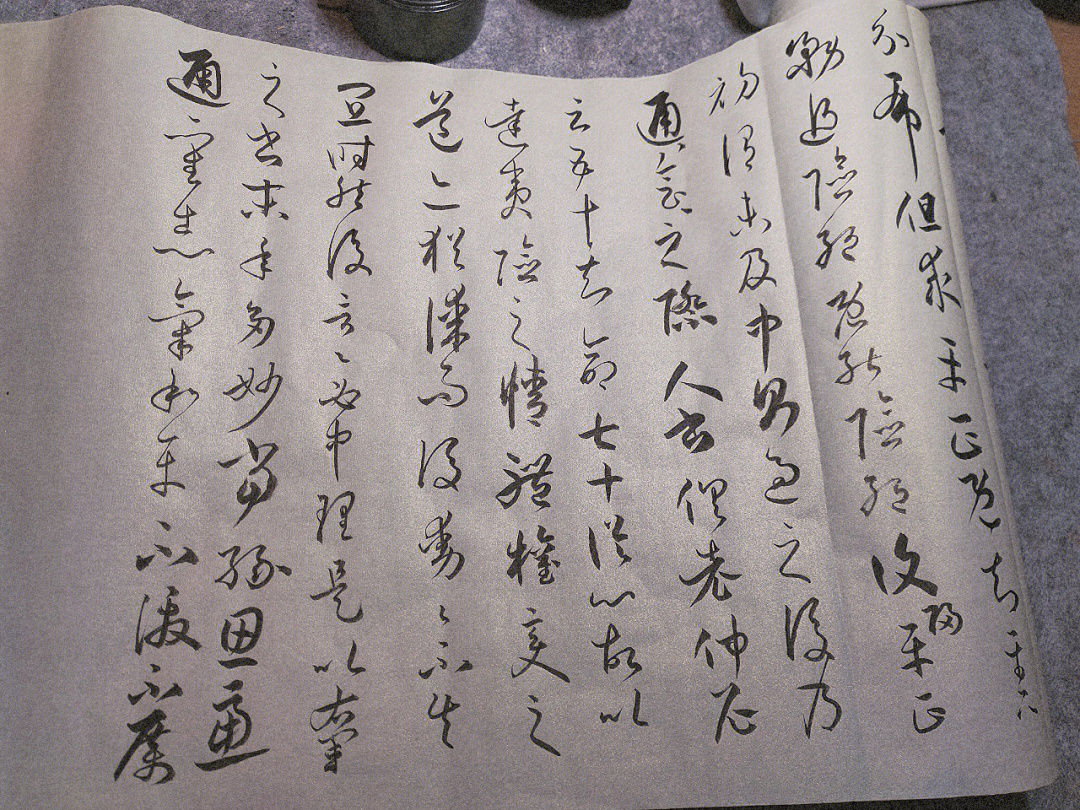 分布但求平正既知平正
務追險絕既能險絕復歸平正
初謂未及中則過之後乃
通會之際人書俱老仲尼
云五十知命七十從心故以
達夷險之情體權變之
道亦猶謀而後動〻不失
宜時然後言〻必中理是以右軍
之書末年多妙當緣思慮
通審志氣和平不激不厲